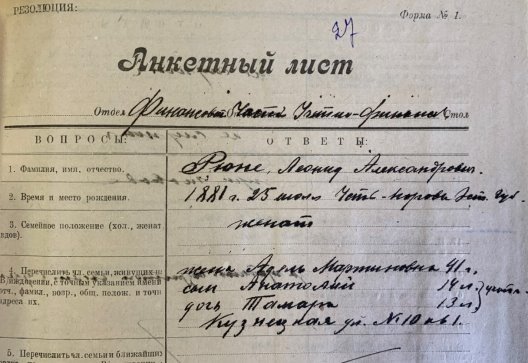 РЕЗОЛЮЦИЯ:
Форма № 1.
27
Анкетный лист
Отдел Финансов. Части Стол
ВОПРОСЫ: ОТВЕТЫ:
1. Фамилия, имя, отчество. Рюне, Леонид Александрович.
2. Время и место рождения. 1881 г. 25 июля
3. Семейное положение (хол., женат женат
вдов).
4. Перечислить чл. семьи, живущих
иждивении, с точным указанием имени жена Адель Мартиновна 41 л.
отч., фамил., возр., общ. полож. и точн. сын Анатолий 14 л.
адреса их. дочь Тамара 13 л.
Кузнецкая ул. № 10 кв 1.
5. Перечислить чл. семьи и ближайших